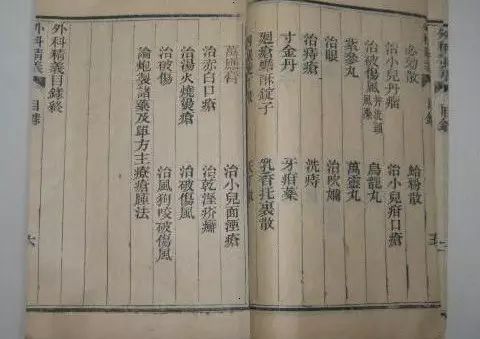 必効散 蛤粉散
治小兒丹瘤 治小兒疳口瘡
治破傷風 烏龍丸
紫參丸 萬靈丸
治眼 治吹嬭
治痔瘡 洗痔
寸金丹 牙疳藥
廻瘡蟾酥錠子 乳香托裏散
萬應膏 治小兒面湮瘡
治赤白口瘡 治乾溼疥癬
治湯火燒燙瘡 治破傷風
治破傷 治風狗咬破傷風
論炮製諸藥及單方主療瘡腫法
外科精義目錄終
外科精義 目錄 六